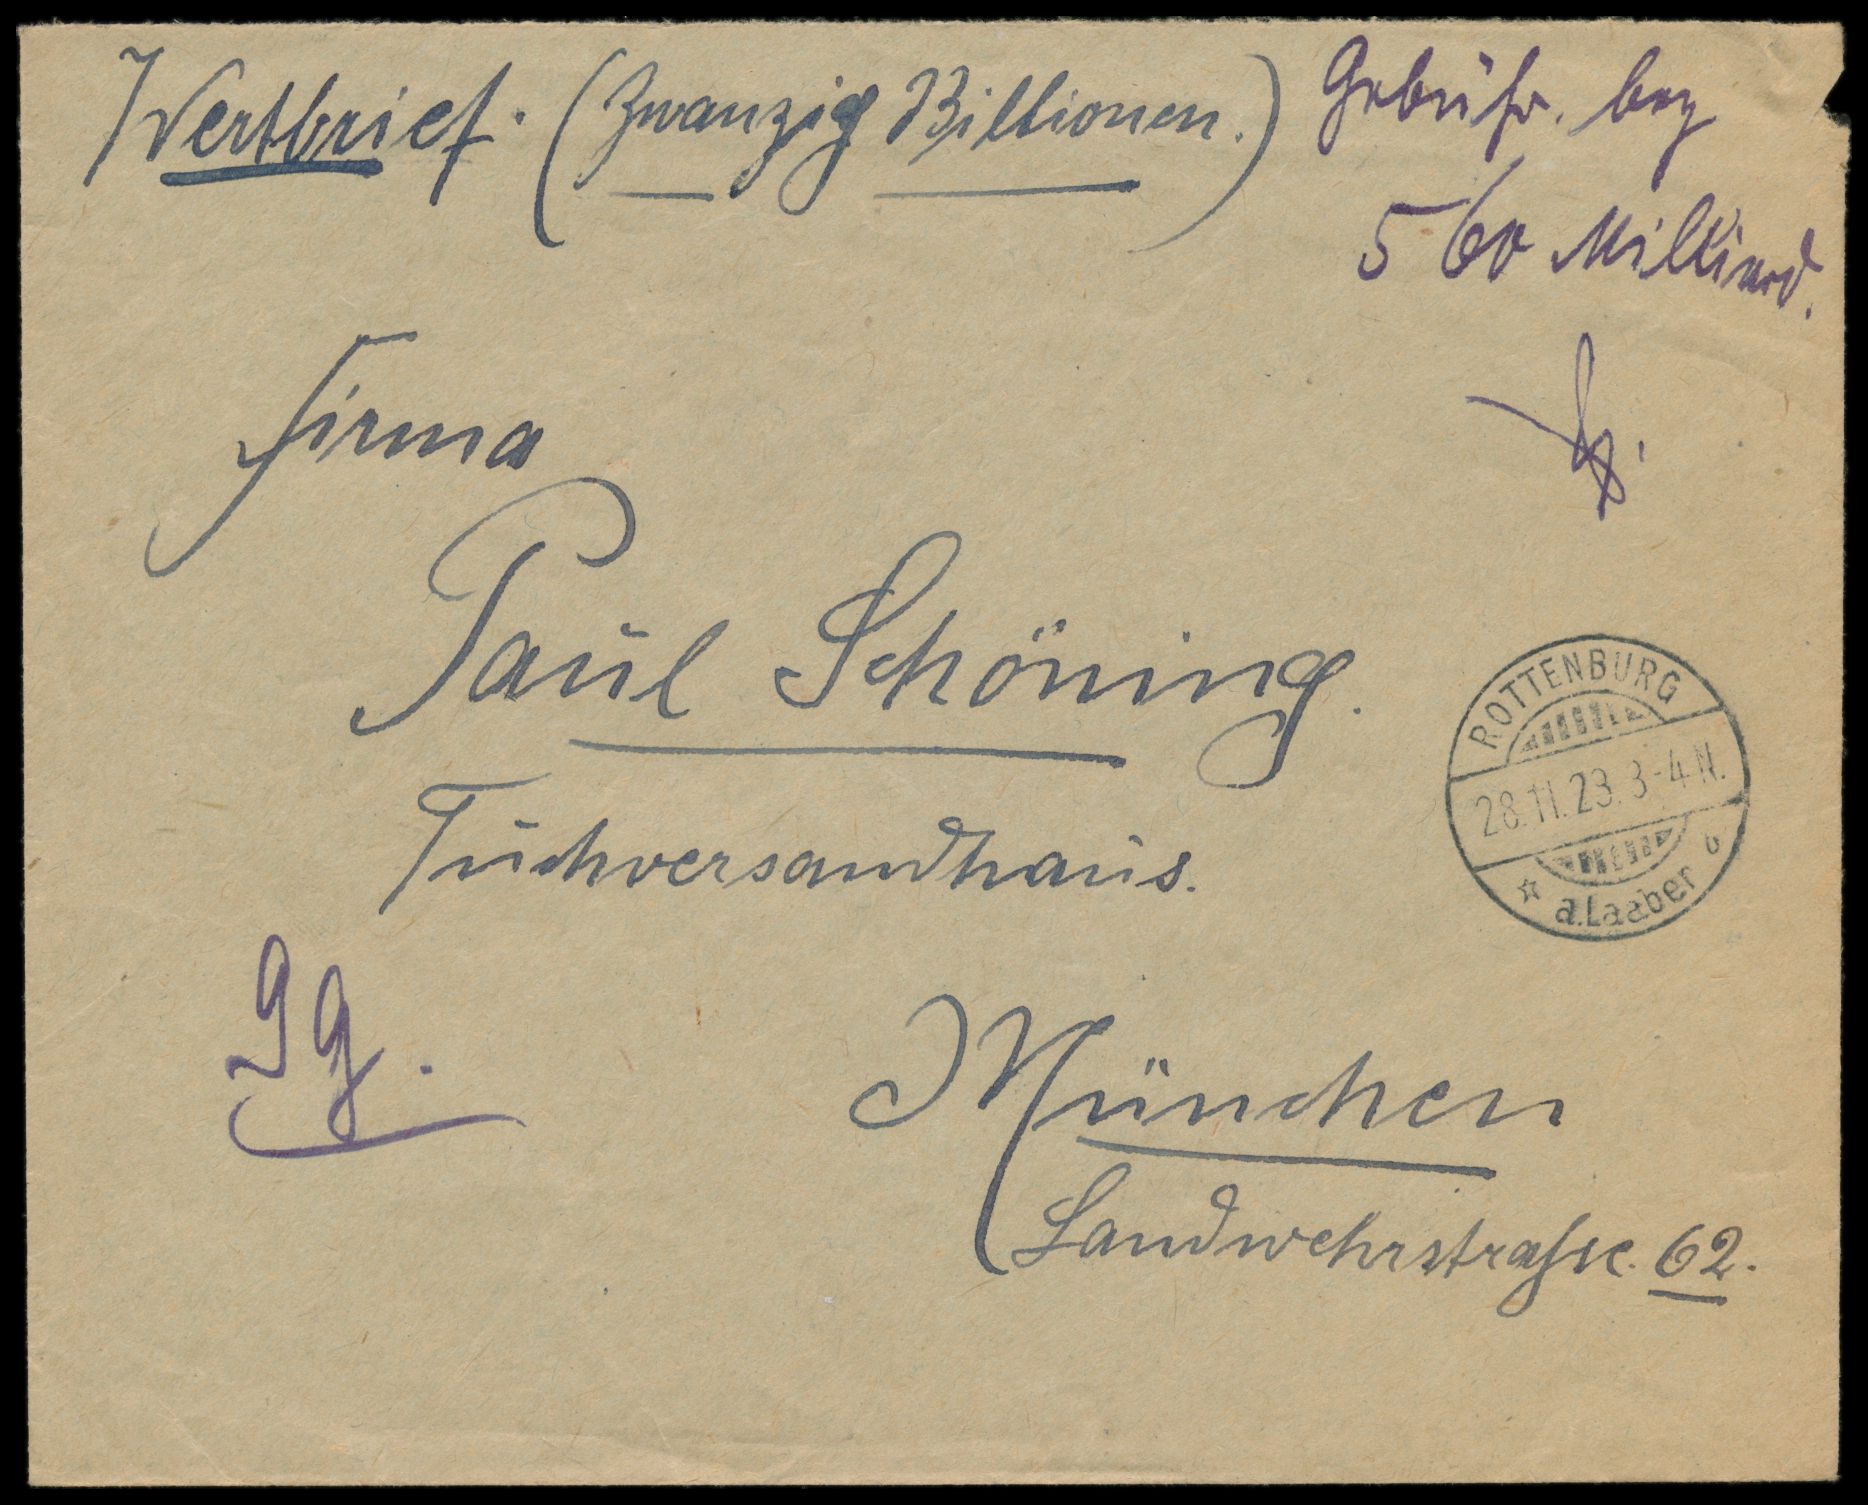 Wertbrief. (Zwanzig Billionen.)
Gebühr. bez
560 Milliard.
Firma
Paul Schöning.
Tuchversandhaus.
ROTTENBURG
28.11.23. 3-4 N.
a.Laaber
9 g.
München
Landwehrstrasse. 62.